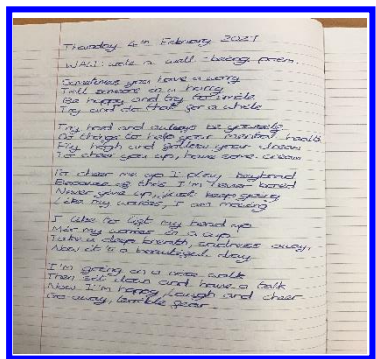 Thursday 4th February 2021
WALT: write a well-being poem.
Sometimes you have a worry
Tell someone in a hurry
Be happy and try to smile
Try and do that for a while
Try hard and always be yourself
Do things to help your mental health
Fly high and follow your dream
To cheer you up, have some cream
To cheer me up I play, keyboard
Because of this I'm never bored
Never give up, just keep going
Like my worries, I am
I like to lift my head up
Mix my worries in a cup
Take a deep breath, sadness away,
Now it's a beautiful day
I'm going on a nice walk
Then sit down and have a talk
Now I'm happy, laugh and cheer
Go away, terrible fear